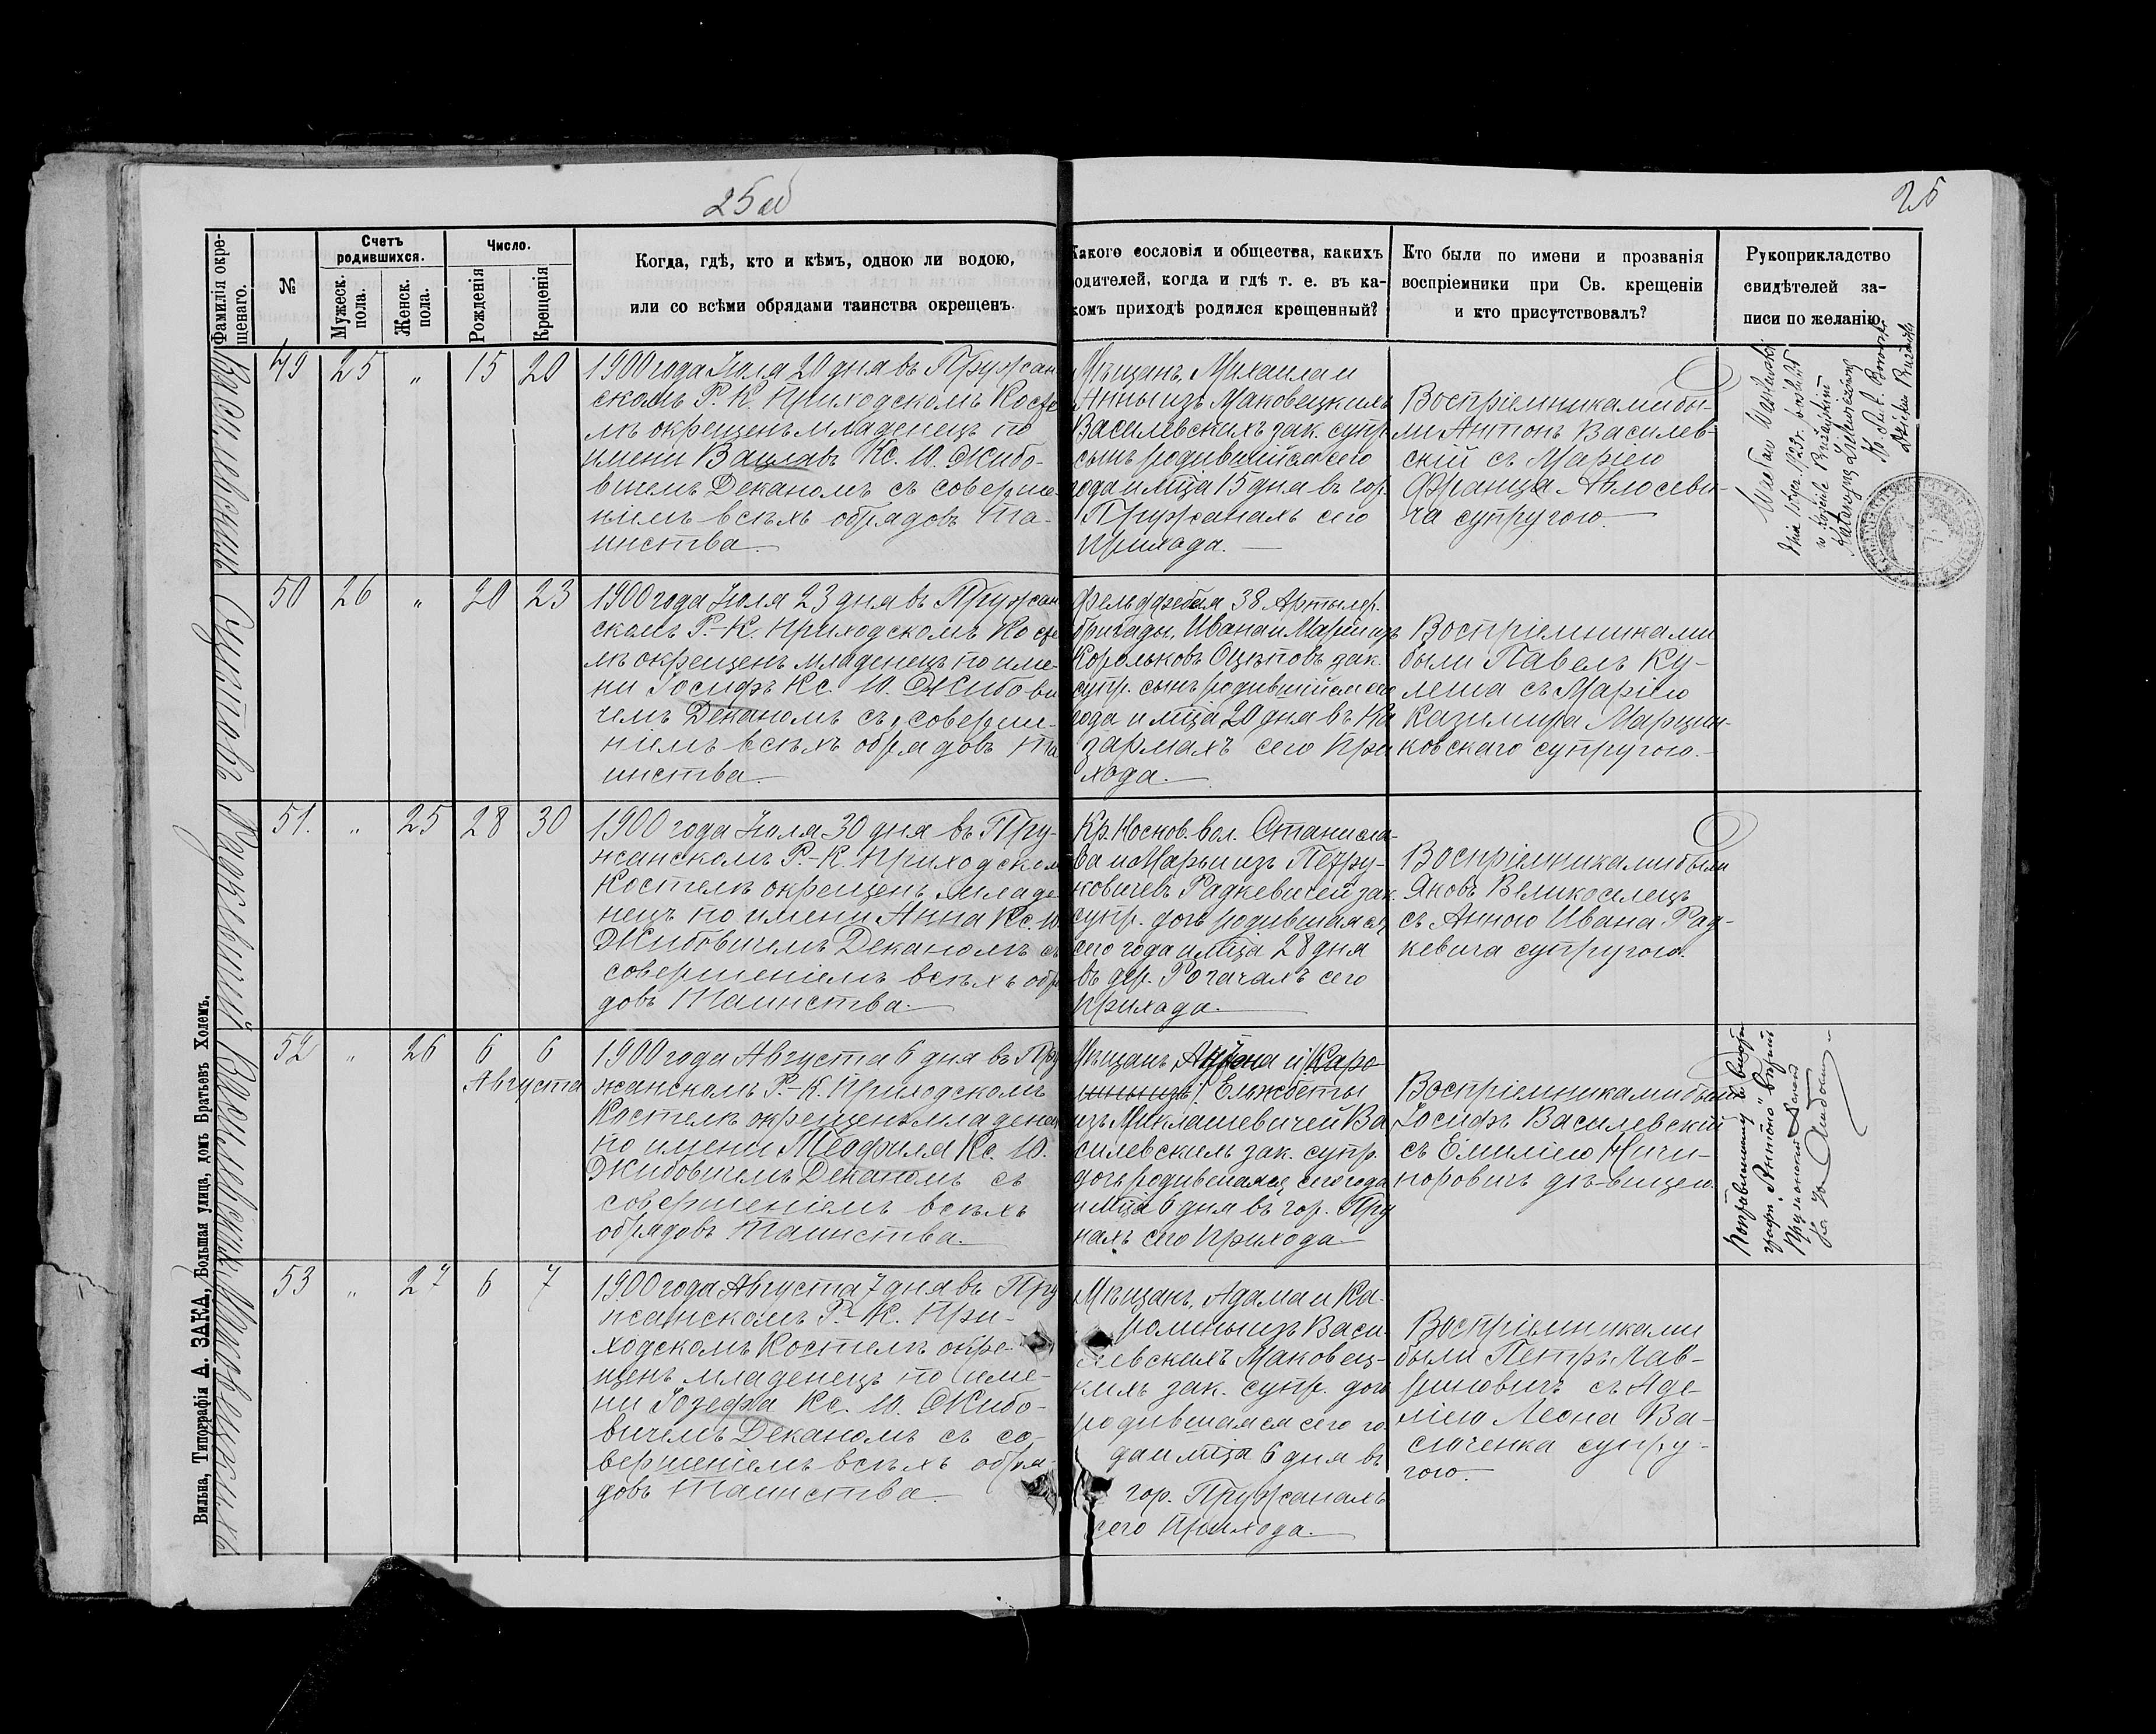 25 об
25
Фамилія окре-
щенаго.
№
Счетъ
родившихся.
Мужеск.
пола.
Женск.
пола.
Число.
Рожденія
Крещенія
Когда, гдѣ, кто и кѣмъ, одною ли водою,
или со всѣми обрядами таинства окрещенъ.
Какого сословія и общества, какихъ
родителей, когда и гдѣ т. е. въ ка-
комъ приходѣ родился крещенный?
Кто были по имени и прозванія
воспріемники при Св. крещеніи
и кто присутствовалъ?
Рукоприкладство
свидѣтелей за-
писи по желанію.
Василевскихъ
49
25
„
15
20
1900 года Іюля 20 дня въ Пружан
скомъ Р. К. Приходскомъ Косте
лѣ окрещенъ младенецъ по
имени Вацлавъ Кс. Ю. Жибо-
вичемъ Деканомъ съ соверше-
ніемъ всѣхъ обрядовъ Та-
инства.
Мѣщанъ, Михаила и
Анны изъ Маковецкихъ
Василевскихъ зак. супр.
сынъ родившійся сего
года и мѣца 15 дня въ гор.
Пружанахъ сего
прихода.
Воспріемниками бы-
ли Антонъ Василев-
скій съ Маріею
Франца
ча супругою.
Wacław Wasilewski
w kościele Prużańskim
Katarzyną
Осиповъ
50
26
„
20
23
1900 года Іюля 23 дня въ Пружан
скомъ Р.-К. Приходскомъ Косте
лѣ окрещенъ младенецъ по име-
ни Іосифъ Кс. Ю. Жибови
чемъ Деканомъ съ соверше-
ніемъ всѣхъ обрядовъ Та
инства.
Фельдфебеля 38 Артилер.
бригады, Ивана и Маріи изъ
Корольковъ Осиповъ зак.
супр. сынъ родившійся сего
года и мѣца 20 дня въ Ка
зармахъ сего При
хода.
Воспріемниками
были Павелъ Ку-
леша съ Маріею
Казимира Марцин-
ковскаго супругою.
Радкевичей
51.
„
25
28
30
1900 года Іюля 30 дня въ Пру-
жанскомъ Р.-К. Приходскомъ
Костелѣ окрещенъ младе
нецъ по имени Анна Кс. Ю.
Жибовичемъ Деканомъ съ
совершеніемъ всѣхъ обря
довъ Таинства.
Кр. Носков. вол. Станисла-
ва и Марьи изъ Петру-
ковичей Радкевичей зак.
супр. дочь родившаяся
сего года и мѣца 28 дня
въ дер. Рогачахъ сего
прихода.
Воспріемниками были
Яковъ Великоселецъ
съ Анною Ивана Рад-
кевича супругою.
Василевскихъ
52
„
26
6
6
Августа
1900 года Августа 6 дня въ Пру
жанскомъ Р.-К. Приходскомъ
Костелѣ окрещенъ младенецъ
по имени Теофиля Кс. Ю.
Жибовичемъ Деканомъ съ
совершеніемъ всѣхъ
обрядовъ Таинства.
Мѣщанъ Антона и Каро
лины изъ Ельжбеты
изъ Миклашевичей Ва
силевскихъ зак. супр.
дочь родившаяся сего года
и мѣца 6 дня въ гор. Пру
нахъ сего прихода
Воспріемниками были
Іосифъ Василевскій
съ Емиліею Ничи-
поровичъ дѣвицею.
графѣ „Антона"
Пружанскій Деканъ
Кс. Ю. Жибовичъ
Маковецкихъ
53
„
27
6
7
1900 года Августа 7 дня въ Пру
жанскомъ Р. К. При-
ходскомъ Костелѣ окре-
щенъ младенецъ по име-
ни Іозефа Кс. Ю. Жибо-
вичемъ Деканомъ съ со-
вершеніемъ всѣхъ обря-
довъ Таинства.
Мѣщанъ, Адама и Ка-
ролины изъ Васи-
левскихъ Маковец-
кихъ зак. супр. дочь
родившаяся сего го-
да и мѣца 6 дня въ
гор. Пружанахъ
сего прихода.
Воспріемниками
были Петръ Лав-
риновичъ съ Аде-
ліею Леона Ва-
сюченка супру-
гою.
Вильна, Типографія А. ЗАКА, Большая улица, домъ Братьевъ Холемъ.